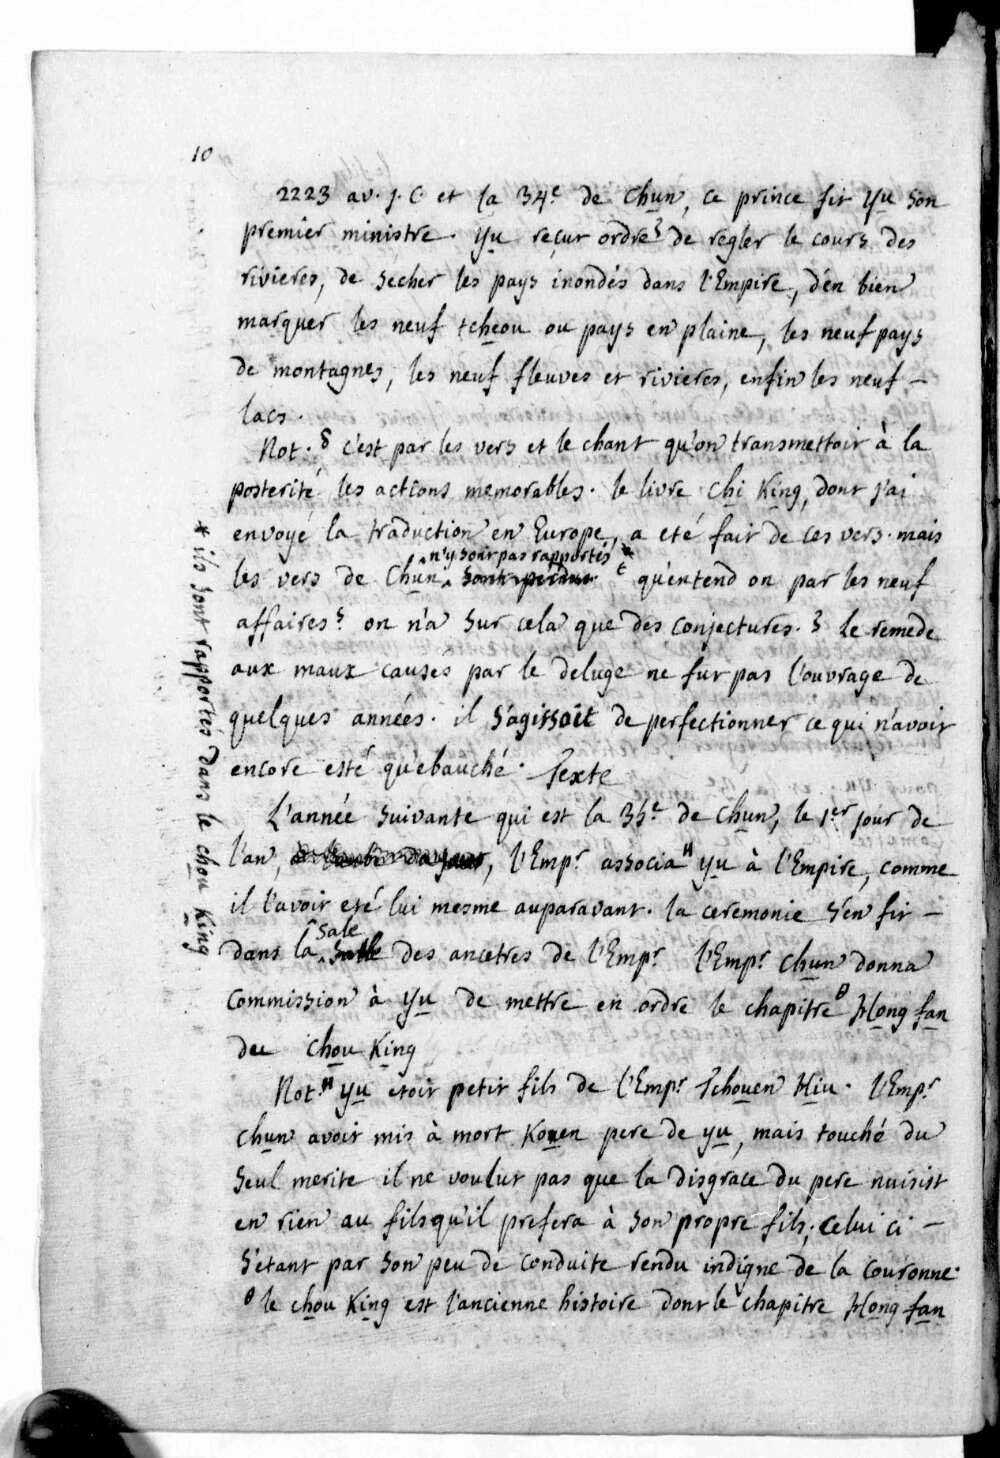 10
2223 av. j. C. et la 34.e de Chun, ce prince fit Yu son
premier ministre. Yu reçut ordre de regler le cours des
rivieres, de secher les pays inondés dans l'Empire, d'en bien
marquer les neuf tcheou ou pays en plaine, les neuf pays
de montagnes, les neuf fleuves et rivieres, enfin les neuf –
lacs.
Not. δ c'est par les vers et le chant qu'on transmettoit à la
posterité les actions memorables. le livre Chi King, dont j'ai
envoyé la traduction en Europe, a eté fait de ces vers. mais
n'y sont pas rapportés *
les vers de Chun sont perdus. ε qu'entend on par les neuf
affaires? on n'a sur cela que des conjectures. ζ Le remede
aux maux causes par le deluge ne fut pas l'ouvrage de
quelques années. il s'agissoit de perfectionner ce qui n'avoit
encore esté qu'ebauché. Texte
L'année suivante qui est la 35.e de Chun, le 1.er jour de
l'an, l'Emp.r associa H Yu à l'Empire, comme
il l'avoit eté lui mesme auparavant. la ceremonie s'en fit –
Sale
dans la Salle des ancetres de l'Emp.r l'Emp.r Chun donna
commission à Yu de mettre en ordre le chapitre θ Hong fan
du Chou King
Not. H Yu etoit petit fils de l'Emp.r Tchouen Hiu. l'Emp.r
Chun avoit mis à mort Kouen pere de Yu, mais touché du
seul merite il ne voulut pas que la disgrace du pere nuisist
en rien au fils qu'il prefera à son propre fils, celui ci –
s'etant par son peu de conduite rendu indigne de la couronne.
θ le Chou King est l'ancienne histoire dont le chapitre Hong fan
* ils sont rapportés dans le Chou King